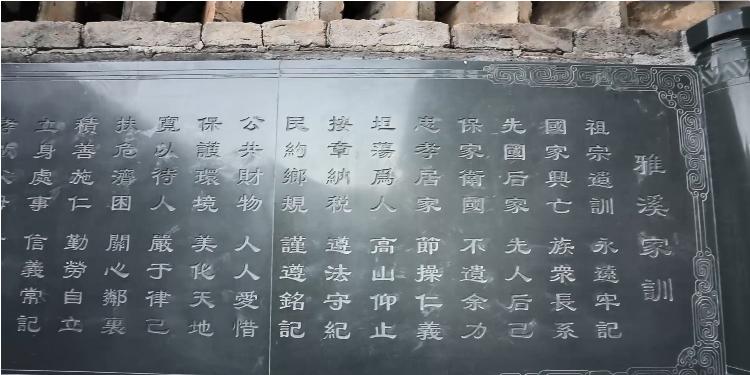 雅溪家訓
祖宗遺訓 永遠牢記
國家興亡 族衆長系
先國后家 先人后己
保家衛國 不遺余力
忠孝居家 節操仁義
坦蕩爲人 高山仰止
按章納税 遵法守紀
民約鄉規 謹遵銘記
公共財物 人人愛惜
保護環境 美化天地
寬以待人 嚴于律己
扶危濟困 關心鄰裏
積善施仁 勤勞自立
立身處事 信義常記